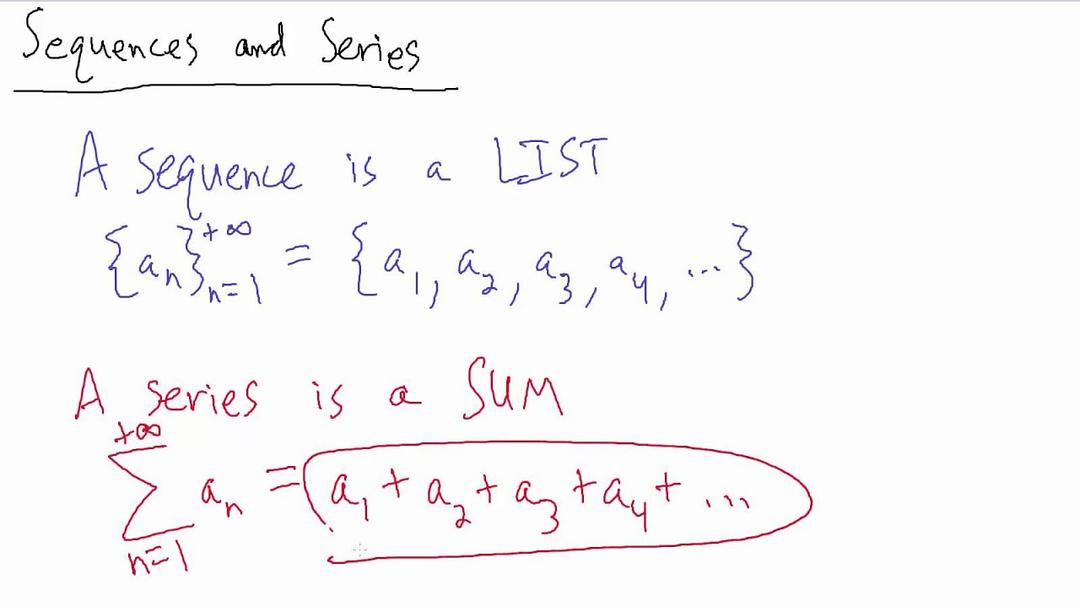 Sequences and Series
A sequence is a LIST
{aₙ}ₙ₌₁^+∞ = {a₁, a₂, a₃, a₄, ...}
A series is a SUM
+∞
∑ aₙ = a₁ + a₂ + a₃ + a₄ + ...
n=1